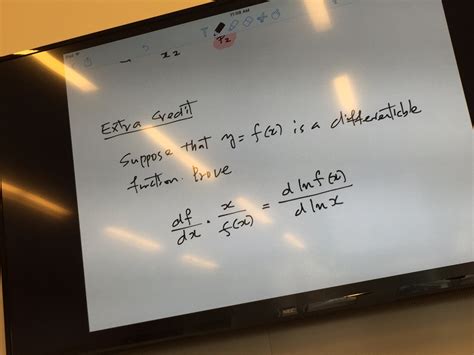 11:08 AM
x 2
Extra Credit
Suppose that y = f(x) is a differentiable
function. Prove
df/dx · x/f(x) = d ln f(x)/d ln x
NEC